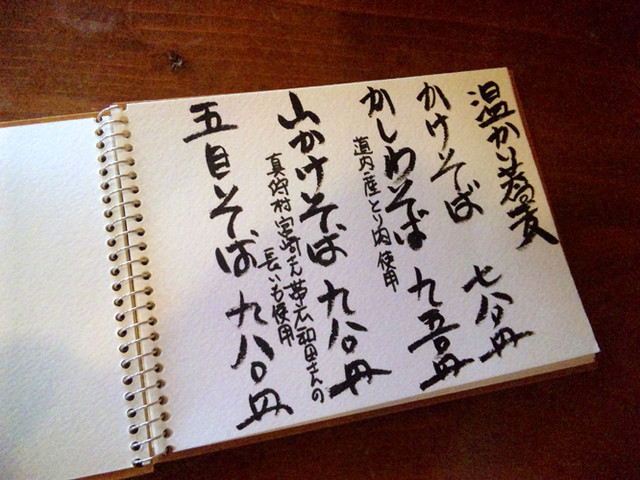 温かい蕎麦
かけそば 七八〇円
かしわそば 九五〇円
道内産とり肉使用
山かけそば 九八〇円
真狩村宮崎さん帯広和田さんの
長いも使用
五目そば 九八〇円